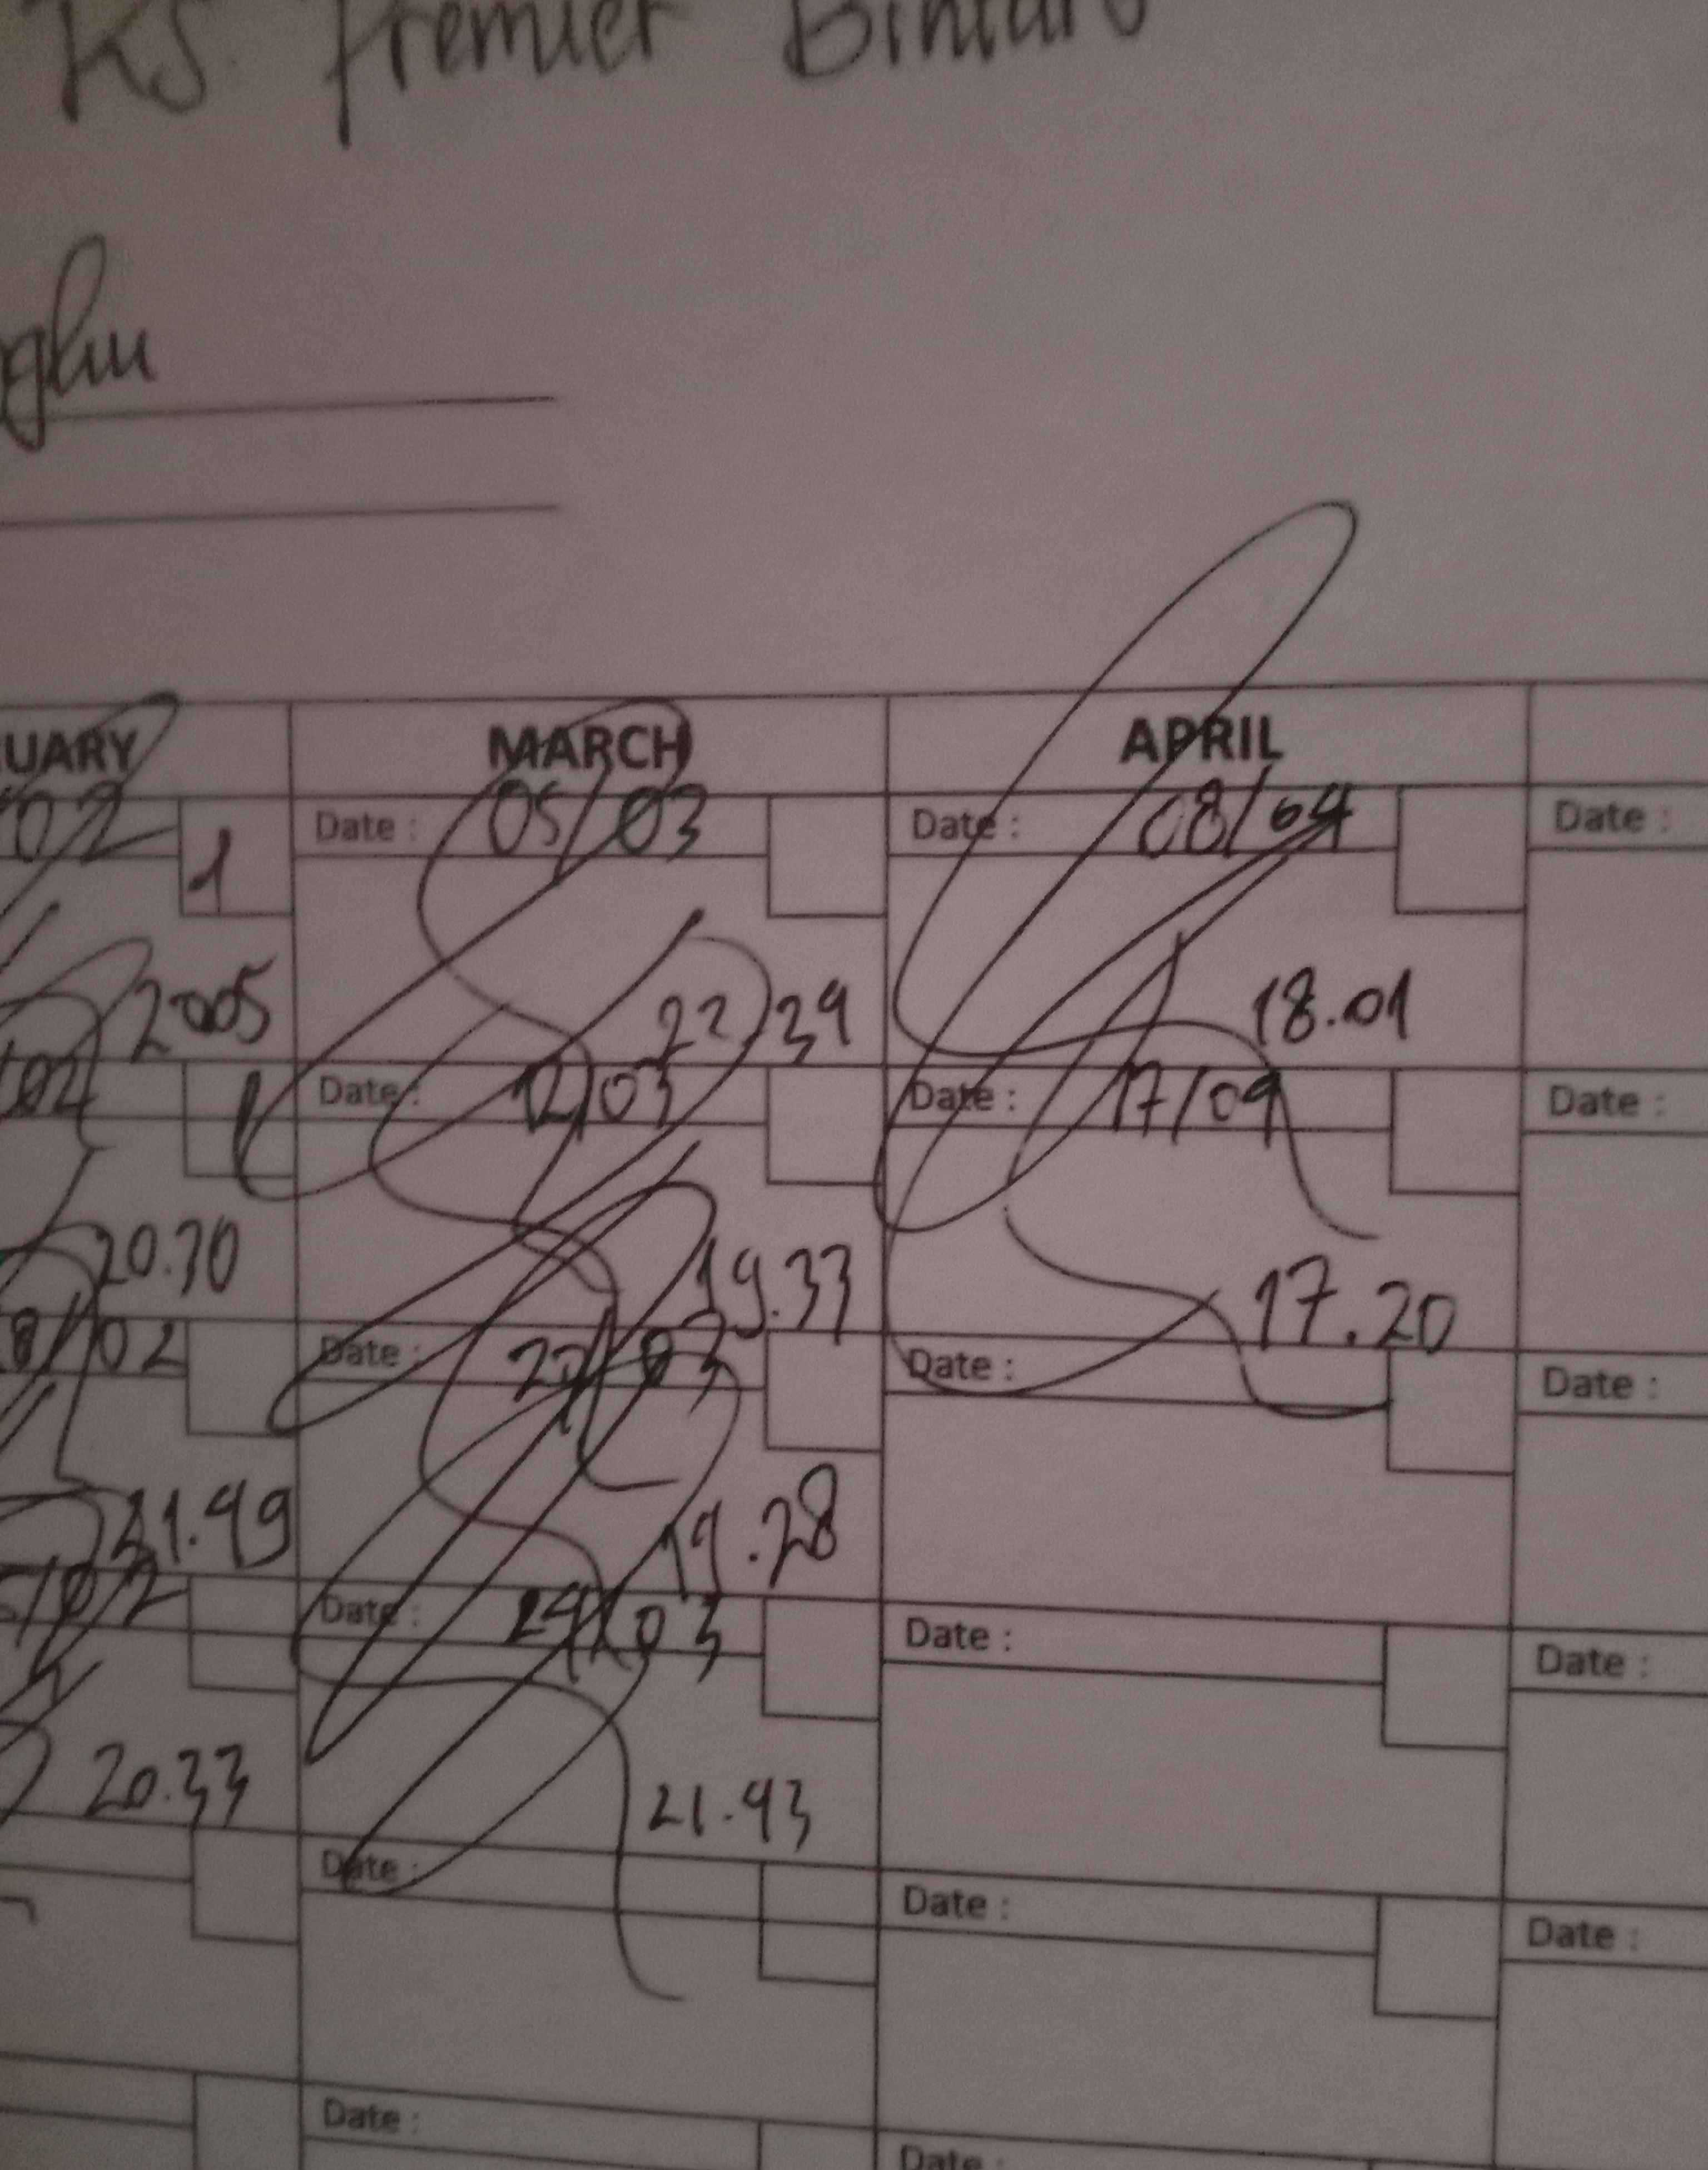 RS. Premier Bintaro
UARY MARCH APRIL
02 1 Date : 05/03 Date : 08/04 Date :
2005 22.34 18.01
02 Date : 12/03 Date : 17/04 Date :
20.30 19.33 17.20
8/02 Date : 22/03 Date : Date :
21.49 19.28
/02 Date : 29/03 Date : Date :
20.33 21.43
Date : Date : Date :
Date : Date :